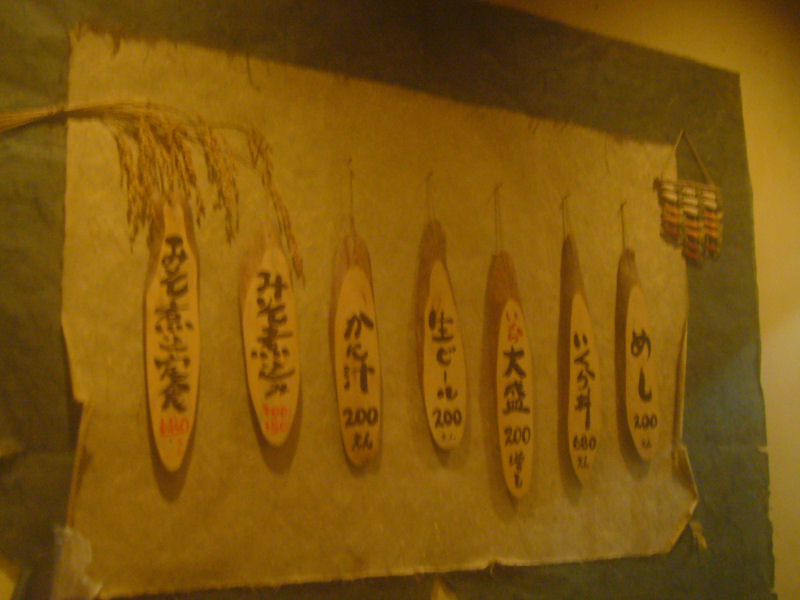 めし
200
えん
いくら丼
680
えん
いくら
大盛
200
増し
生ビール
200
えん
かに汁
200
えん
みそ煮込み
みそ煮込定食
680